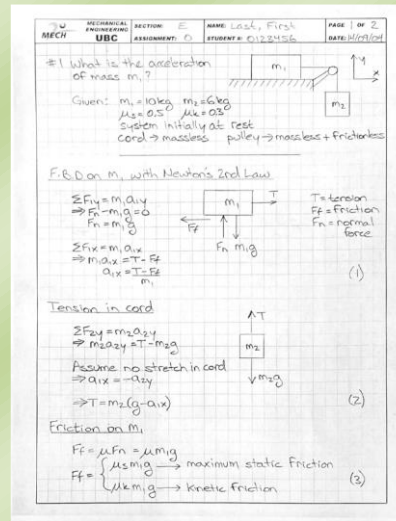 MECH
MECHANICAL
ENGINEERING
UBC
SECTION: E
ASSIGNMENT: 0
NAME: Last, First
STUDENT #: 0123456
PAGE 1 OF 2
DATE: 14/09/04
#1 What is the acceleration
of mass m₁?
m₁
y
x
m₂
Given: m₁ = 10kg m₂ = 6kg
μs = 0.5 μk = 0.3
system initially at rest
cord → massless pulley → massless + frictionless
F.B.D on m₁ with Newton's 2nd Law
ΣF₁y = m₁a₁y
⇒ Fn - m₁g = 0
Fn = m₁g
m₁
T
Ff
Fn m₁g
T = tension
Ff = friction
Fn = normal
force
ΣF₁x = m₁a₁x
⇒ m₁a₁x = T - Ff
a₁x = T - Ff
m₁
(1)
Tension in cord
ΣF₂y = m₂a₂y
⇒ m₂a₂y = T - m₂g
T
m₂
m₂g
Assume no stretch in cord
⇒ a₁x = -a₂y
⇒ T = m₂(g - a₁x)
(2)
Friction on m₁
Ff = μFn = μm₁g
Ff = { μs m₁g → maximum static friction
μk m₁g → kinetic friction
(3)